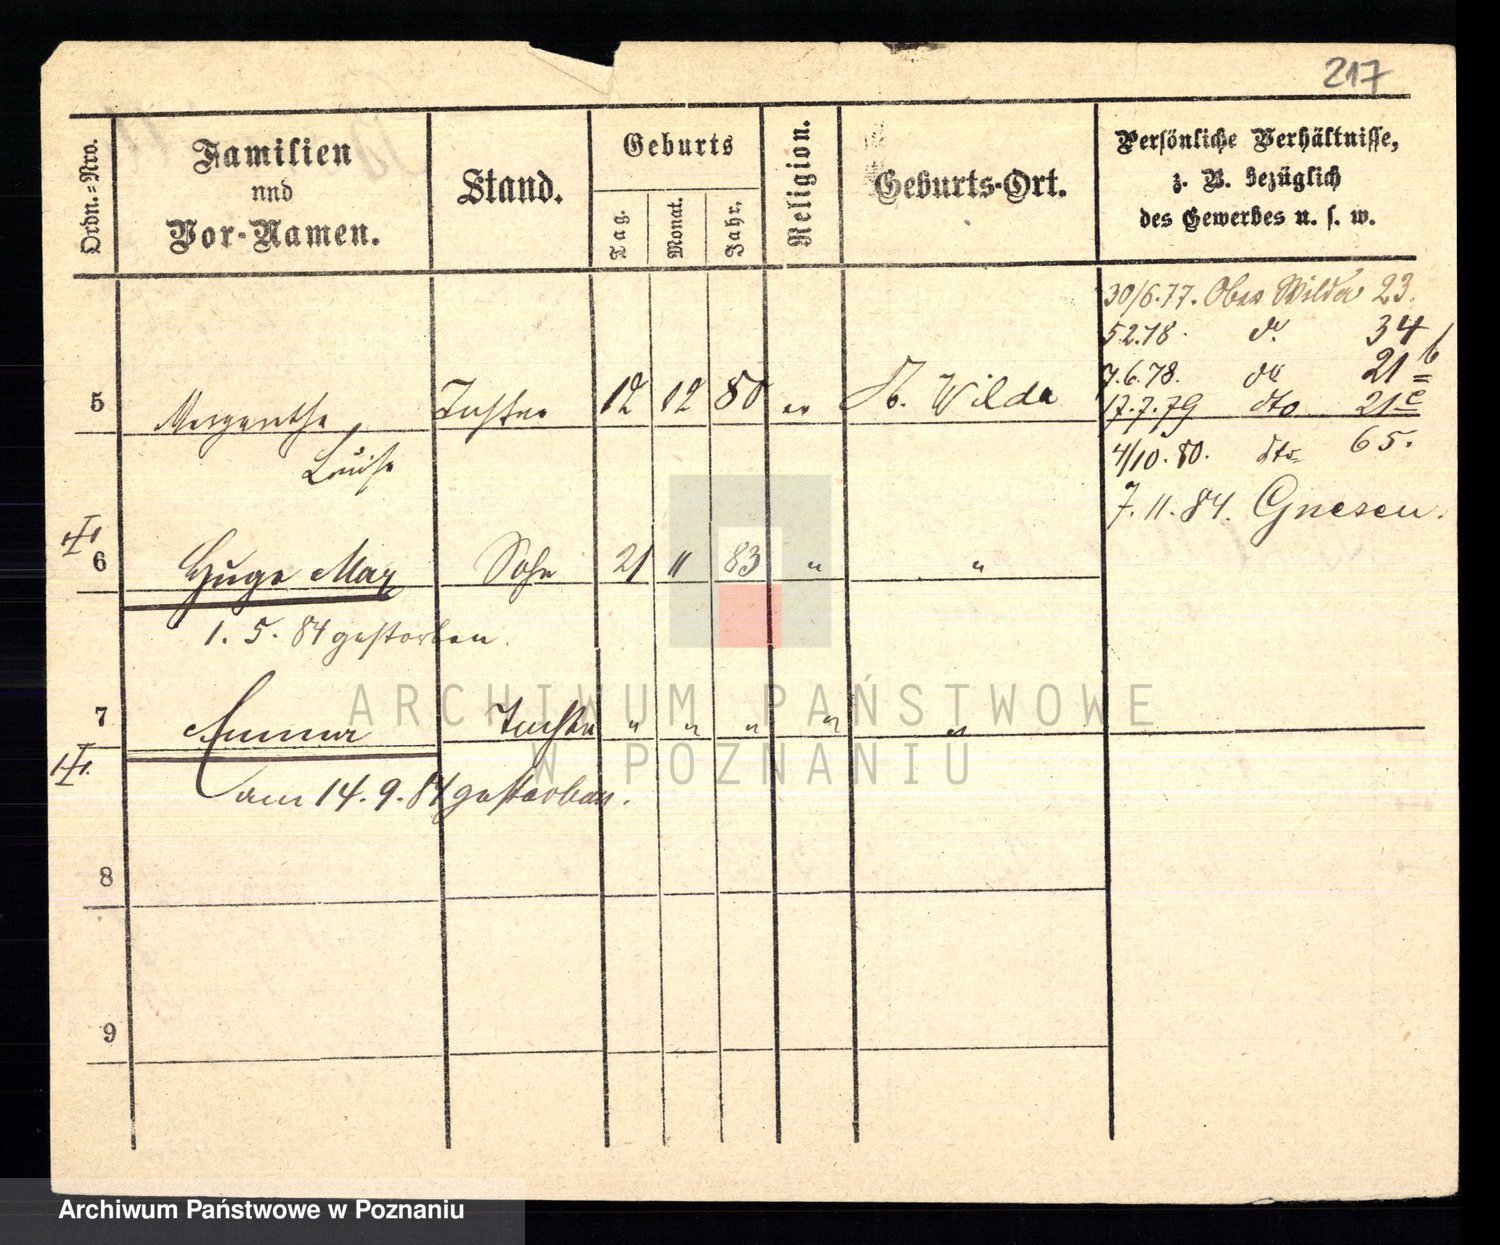 217
Ordn.-Nro.
Familien
und
Vor-Namen.
Stand.
Geburts
Tag.
Monat.
Jahr.
Religion.
Geburts-Ort.
Persönliche Verhältnisse,
z. B. bezüglich
des Gewerbes u. s. w.
30/6.77. Ober Wilda 23.
5.2.78. do 34
7.6.78. do 21 b
17.7.79 dto 21 c
4/10.80. dto 65.
7.11.84. Gnesen.
5 Margarethe Tochter 12 12 80 ev O. Wilda
Luise
6 Hugo Max Sohn 21 11 83 " "
1. 5. 84 gestorben.
7 Tochter " " " " "
am 14. 9. 84 gestorben.
8
9
ARCHIWUM PAŃSTWOWE
W POZNANIU
Archiwum Państwowe w Poznaniu